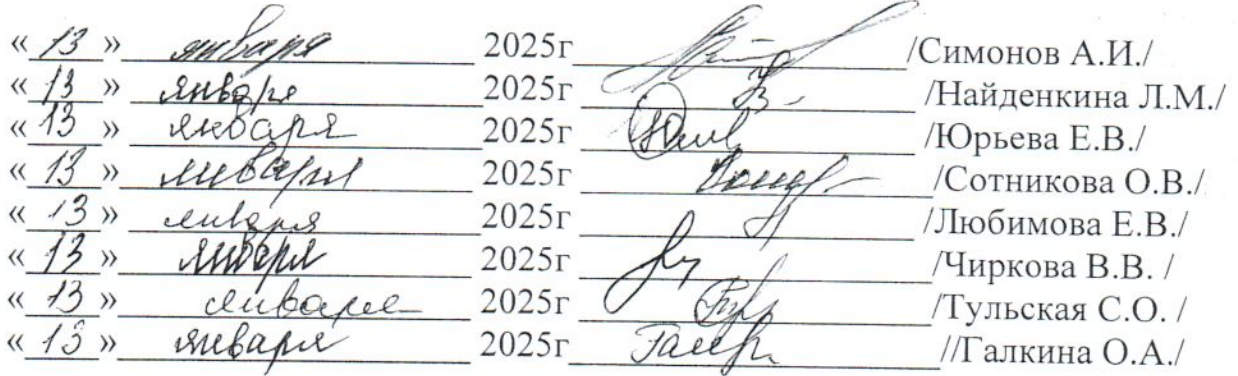 « 13 » января 2025г /Симонов А.И./
« 13 » января 2025г /Найденкина Л.М./
« 13 » января 2025г /Юрьева Е.В./
« 13 » января 2025г /Сотникова О.В./
« 13 » января 2025г /Любимова Е.В./
« 13 » января 2025г /Чиркова В.В. /
« 13 » января 2025г /Тульская С.О. /
« 13 » января 2025г //Галкина О.А./